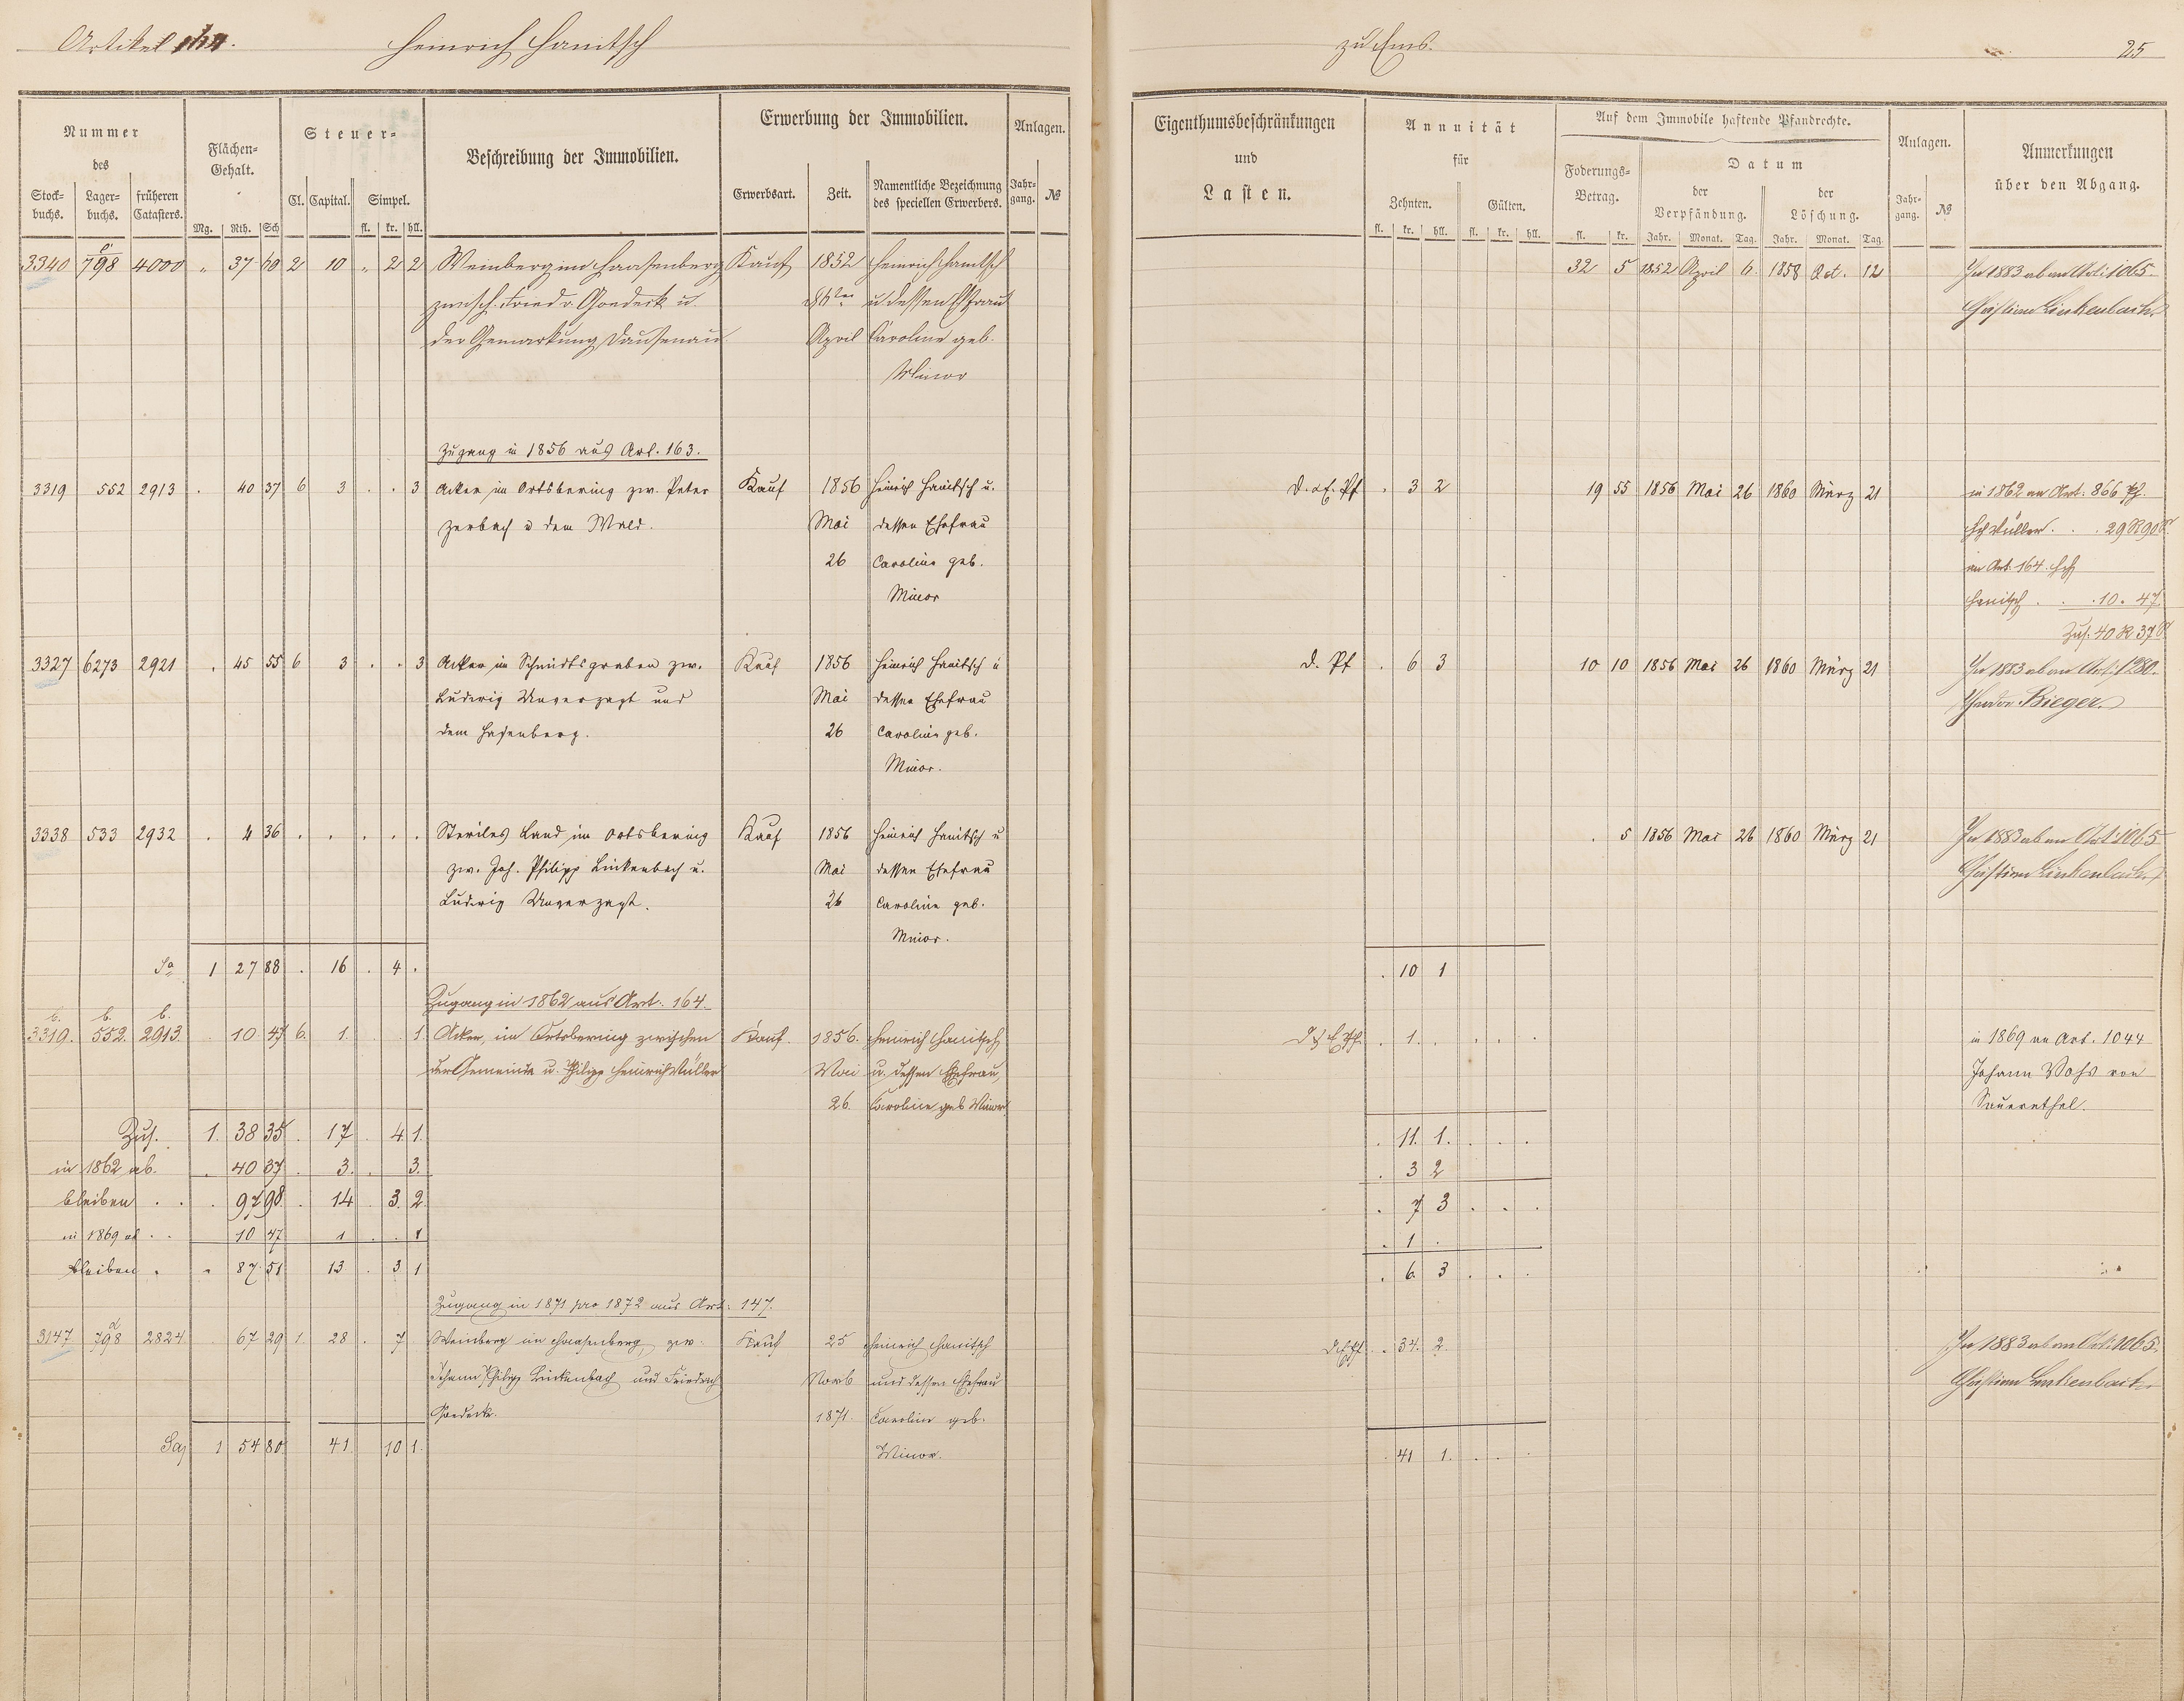 Artikel 164. Heinrich Hanitsch zu Ems. 25
Nummer des
Stock-buchs. Lager-buchs. früheren Catasters.
Flächen-Gehalt.
Mg. Rth. Sch
Steuer-
Cl. Capital. Simpel.
fl. kr. hll.
Beschreibung der Immobilien.
Erwerbung der Immobilien.
Erwerbsart. Zeit. Namentliche Bezeichnung des speciellen Erwerbers.
Anlagen.
Jahr-gang. №
Eigenthumsbeschränkungen
und
Lasten.
Annuität
für
Zehnten. Gülten.
fl. kr. hll. fl. kr. hll.
Auf dem Immobile haftende Pfandrechte.
Foderungs-Betrag.
fl. kr.
Datum
der Verpfändung. der Löschung.
Jahr. Monat. Tag. Jahr. Monat. Tag.
Anlagen.
Jahr-gang. №
Anmerkungen
über den Abgang.
3340 798 4000 „ 37 60 2 10 „ 2 2 Weinberg im Haasenberg Kauf 1852 Heinrich Hanitsch 32 5 1852 April 6. 1858 Oct. 12 In 1883 ab an Art: 1065
zwisch. Friedr. Goedeck u. 6ten u dessen Ehfrau Christian Linkenbach
der Gemarkung Dausenau April Caroline geb.
Minor
Zugang in 1856 aus Art. 163.
3319 552 2913 . 40 37 6 3 . . 3 Acker im Ortsbering zw. Peter Kauf 1856 Heinrich Hanitsch u. D. & E. Pf . 3 2 19 55 1856 Mai 26 1860 März 21 in 1862 an Art: 866 Ph.
Zerbach u dem Wald. Mai dessen Ehefrau Hch Müller . . 29 R 90 S
26 Caroline geb. an Art. 164. Hch
Minor Hanitsch . . 10. 47.
Zus. 40 R 37 S
3327 6273 2921 . 45 55 6 3 . . 3 Acker im Schmidtsgraben zw. Kauf 1856 Heinrich Hanitsch u D. Pf . 6 3 10 10 1856 Mai 26 1860 März 21 In 1883 ab an Art: 1280.
Ludwig Unverzagt und Mai dessen Ehefrau Theodor Bieger.
dem Hasenberg. 26 Caroline geb.
Minor.
3338 533 2932 . 4 36 . . . . . Steriles Land im Ortsbering Kauf 1856 Heinrich Hanitsch u . 5 1856 Mai 26 1860 März 21 In 1883 ab an Art: 1065
zw. Joh. Philipp Linkenbach u. Mai dessen Ehefrau Christian Linkenbach
Ludwig Unverzagt. 26 Caroline geb.
Minor.
Sa 1 27 88 . 16 . 4 . . 10 1
Zugang in 1862 aus Art: 164.
b. b. b.
3319. 552. 2913. . 10 47 6. 1. . . 1. Acker, im Ortsbering zwischen Kauf. 1856. Heinrich Hanitsch D & E Pf. . 1. . . . . in 1869 an Art. 1044
der Gemeinde u. Philipp Heinrich Müller Mai u. dessen Ehefrau, Johann Vohs von
26. Caroline geb Minor. Sauerethal.
Zus. 1. 38 35 . 17 . 4 1. . 11. 1. . . .
in 1862 ab. . 40 37. . 3. . 3. . 3 2
bleiben . . . 97 98. . 14 . 3. 2. . 7 3 . . .
in 1869 ab . . 10 47 1 . . 1 . 1 .
bleiben . „ 87 51 13 . 3 1 . 6 3 . . .
Zugang in 1871 pro 1872 aus Art: 147.
3147 798 a 2824 . 67 29 1. 28 . 7 Weinberg im Haasenberg, zw. Kauf 25 Heinrich Hanitsch D E Pf . 34. 2. In 1883 ab an Art: 1065.
Johann Philipp Linkenbach und Friedrich Novb und dessen Ehefrau Christian Linkenbach
Goedeck. 1871. Caroline geb.
Sa 1 54 80. 41. 10 1. Minor. . 41 1. . . .